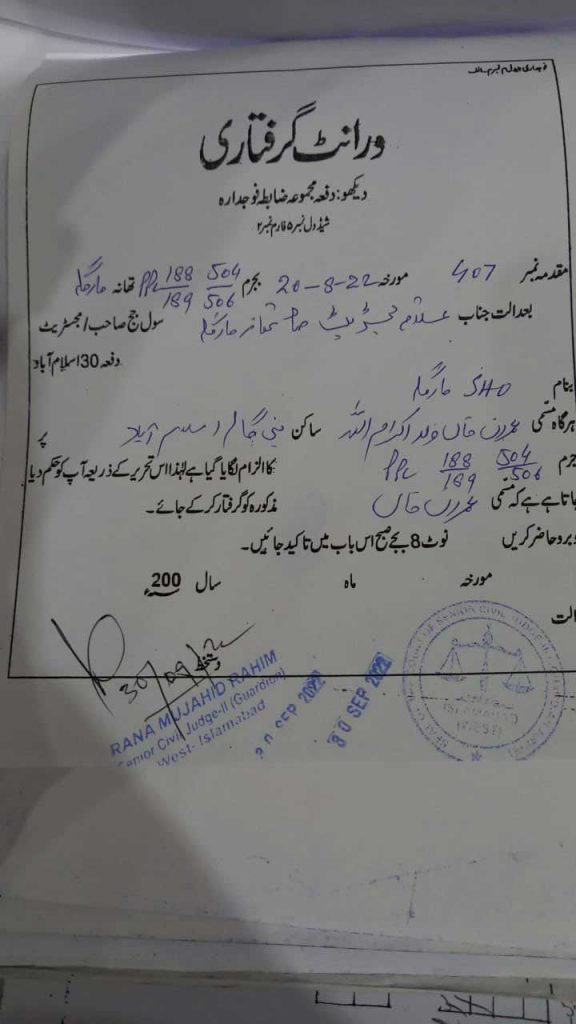 ورانٹ گرفتاری
دیکھو: دفعہ مجموعہ ضابطہ فوجدارہ
شیڈول نمبر ۵ فارم نمبر ۲
مقدمہ نمبر 407 مورخہ 20-8-22 بجرم 504/506 188/189 PPC تھانہ مارگلہ
بعدالت جناب علاقہ مجسٹریٹ صاحب تھانہ مارگلہ سول جج صاحب / مجسٹریٹ
دفعہ 30 اسلام آباد
بنام SHO مارگلہ
ہرگاہ مسمی عمران خان ولد اکرام اللہ ساکن بنی گالہ اسلام آباد پر
جرم 504/506 188/189 PPC کا الزام لگایا گیا ہے لہٰذا اس تحریر کے ذریعہ آپ کو حکم دیا
جاتا ہے ہے کہ مسمی عمران خان مذکورہ کو گرفتار کر کے جائے۔
وبرو حاضر کریں نوٹ 8 بجے صبح اس باب میں تاکید جائیں۔
مورخہ ماہ سال 200
الت
دستخط
30/09/
RANA MUJAHID RAHIM
Senior Civil Judge-II (Guardian)
West- Islamabad
30 SEP 2022
30 SEP 2022
SENIOR CIVIL JUDGE
ISLAMABAD
(WEST)